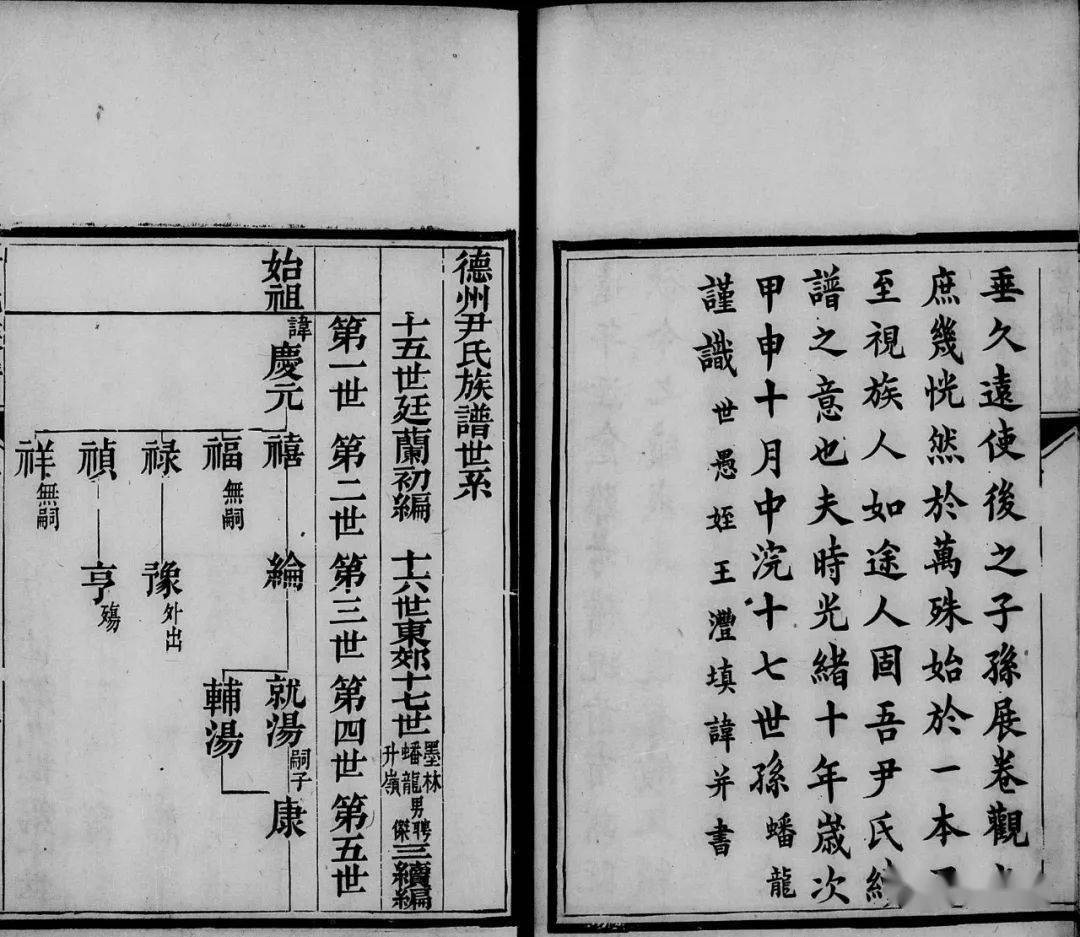 垂久遠使後之子孫展卷觀
庶幾恍然於萬殊始於一本
至視族人如途人固吾尹氏續
譜之意也夫時光緒十年歲次
甲申十月中浣十七世孫蟠龍
謹識 世愚姪王灃填諱并書
德州尹氏族譜世系
十五世廷蘭初編 十六世東郊十七世墨林蟠龍升嶺男聘傑三續編
第一世 第二世 第三世 第四世 第五世
始祖 諱慶元 禧 綸 就湯 嗣子 康
福 無嗣 輔湯
祿 豫 外出
禎 亨 殤
祥 無嗣